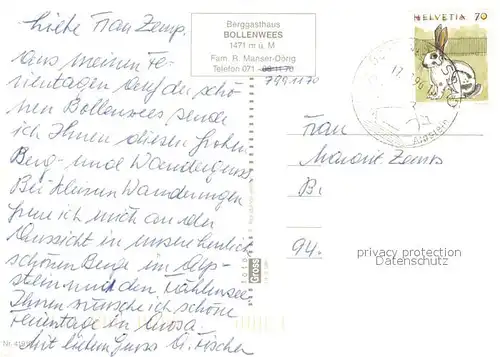 Liebe Frau Zemp.
Aus meinen Fe-
rientagen auf der schö-
nen Bollenwees sende
ich Ihnen diesen frohen
Berg- und Wandergruss
Bei kleinen Wanderungen
freue ich mich an der
Aussicht in unsere herrlich
schönen Berge im Alp-
stein und den Fählensee
Ihnen wünsche ich schöne
Ferientage in Arosa.
Mit liebem Gruss
Berggasthaus
BOLLENWEES
1471 m ü. M
Fam. R. Manser-Dörig
Telefon 071 - 88 11 70
799 11 70
HELVETIA 70
Alpstein
Frau
Zemp
94.
privacy protection
Datenschutz
Foto
Gross